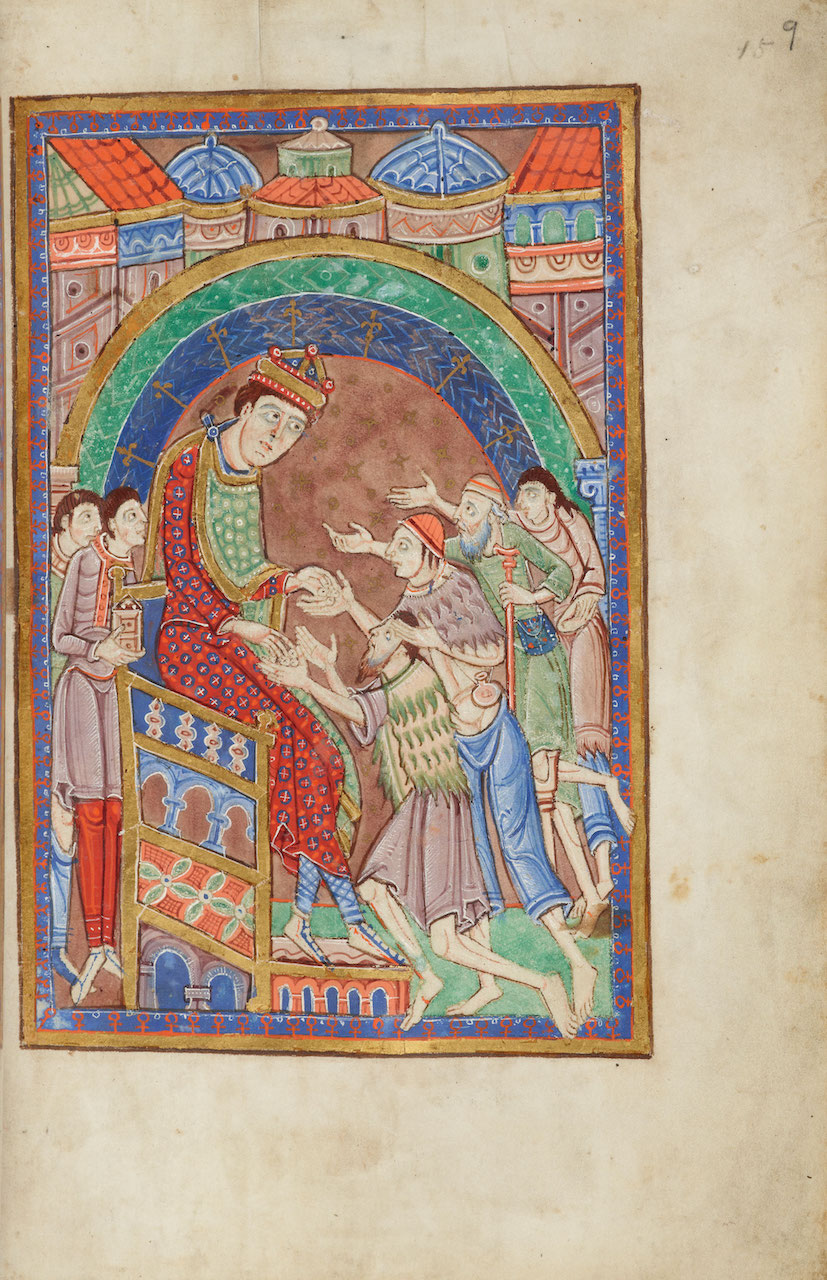 9
15